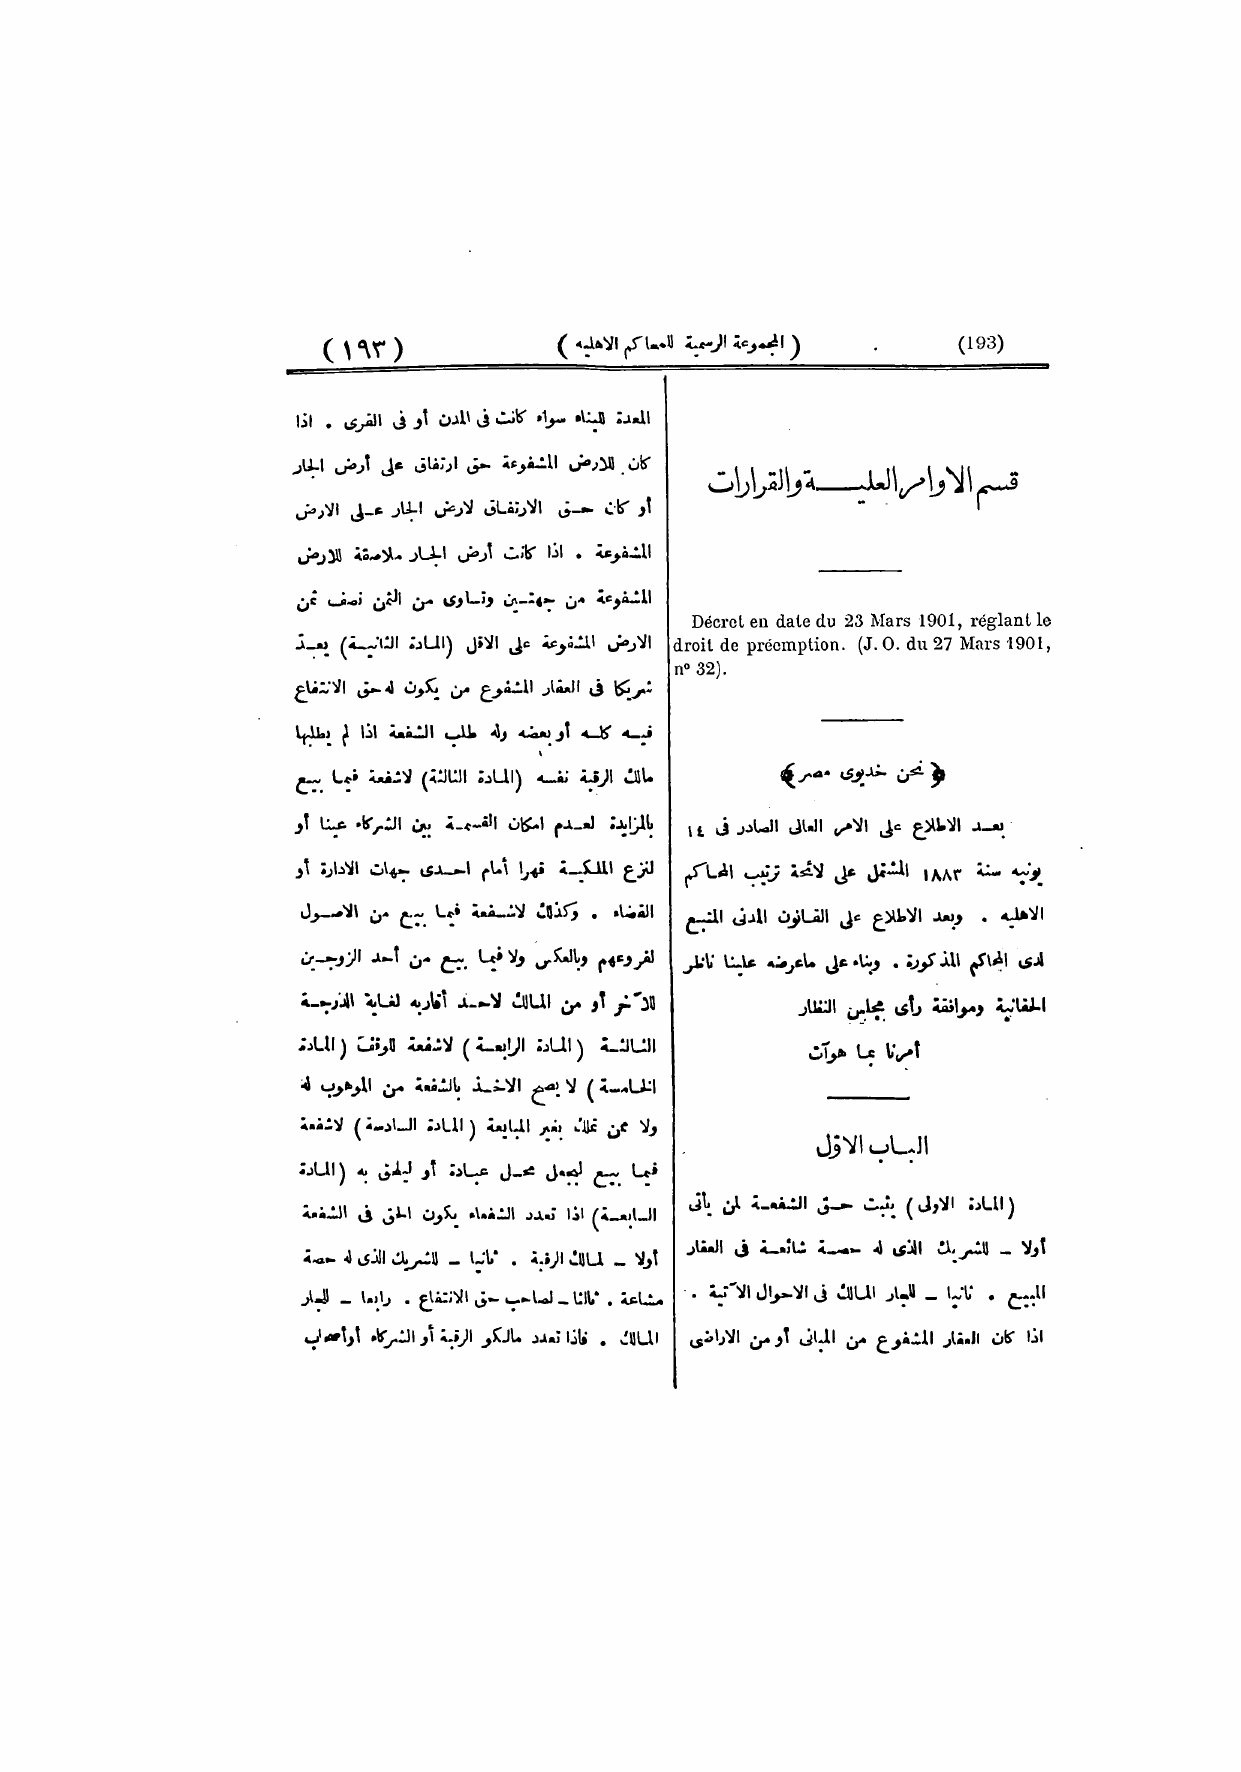 (193)
( المجموعة الرسمية للمحاكم الاهليه )
( ١٩٣ )
قسم الاوامر العلية والقرارات
Décret en date du 23 Mars 1901, réglant le
droit de préemption. (J. O. du 27 Mars 1901,
nº 32).
﴿ نحن خديوى مصر ﴾
بعد الاطلاع على الامر العالى الصادر فى ١٤
يونيه سنة ١٨٨٣ المشتمل على لائحة ترتيب المحاكم
الاهليه . وبعد الاطلاع على القانون المدنى المتبع
لدى المحاكم المذكورة . وبناء على ماعرضه علينا ناظر
الحقانية وموافقة رأى مجلس النظار
أمرنا بما هوآت
الباب الاوّل
(المادة الاولى) يثبت حق الشفعة لمن يأتى
أولا – للشريك الذى له حصة شائعة فى العقار
المبيع . ثانيا – للجار المالك فى الاحوال الآتية .
اذا كان العقار المشفوع من المبانى أو من الاراضى
المعدة للبناء سواء كانت فى المدن أو فى القرى . اذا
كان للارض المشفوعة حق ارتفاق على أرض الجار
أو كان حق الارتفاق لارض الجار على الارض
المشفوعة . اذا كانت أرض الجار ملاصقة للارض
المشفوعة من جهتين وتساوى من الثمن نصف ثمن
الارض المشفوعة على الاقل (المادة الثانية) يعدّ
شريكا فى العقار المشفوع من يكون له حق الانتفاع
فيه كله أو بعضه وله طلب الشفعة اذا لم يطلبها
مالك الرقبة نفسه (المادة الثالثة) لاشفعة فيما بيع
بالمزايدة لعدم امكان القسمة بين الشركاء عينا أو
لنزع الملكية قهرا أمام احدى جهات الادارة أو
القضاء . وكذلك لاشفعة فيما بيع من الاصول
لفروعهم وبالعكس ولا فيما بيع من أحد الزوجين
للآخر أو من المالك لاحد أقاربه لغاية الدرجة
الثالثة (المادة الرابعة) لاشفعة للوقف (المادة
الخامسة) لا يصح الاخذ بالشفعة من الموهوب له
ولا ممن تملك بغير المبايعة (المادة السادسة) لاشفعة
فيما بيع ليجعل محل عبادة أو ليلحق به (المادة
السابعة) اذا تعدد الشفعاء يكون الحق فى الشفعة
أولا – لمالك الرقبة . ثانيا – للشريك الذى له حصة
مشاعة . ثالثا – لصاحب حق الانتفاع . رابعا – للجار
المالك . فاذا تعدد مالكو الرقبة أو الشركاء أوأصحاب